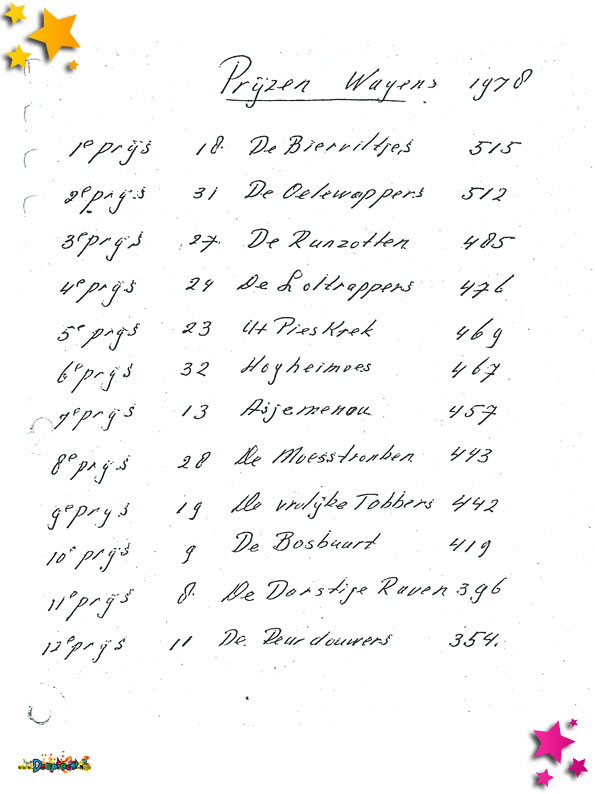 Prijzen Wagens 1978
1e prijs 18. De Bierviltjes 515
2e prijs 31 De Oelewappers 512
3e prijs 27. De Runzotten 485
4e prijs 24 De Loltrappers 476
5e prijs 23 Ut Pies Krek 469
6e prijs 32 Hogheimoes 467
7e prijs 13 Asjemenou 457
8e prijs 28 De Moesstronken 443
9e prijs 19 De vrolijke Tobbers 442
10e prijs 9 De Bosbuurt 419
11e prijs 8. De Dorstige Raven 396
12e prijs 11 De Deurdouwers 354.